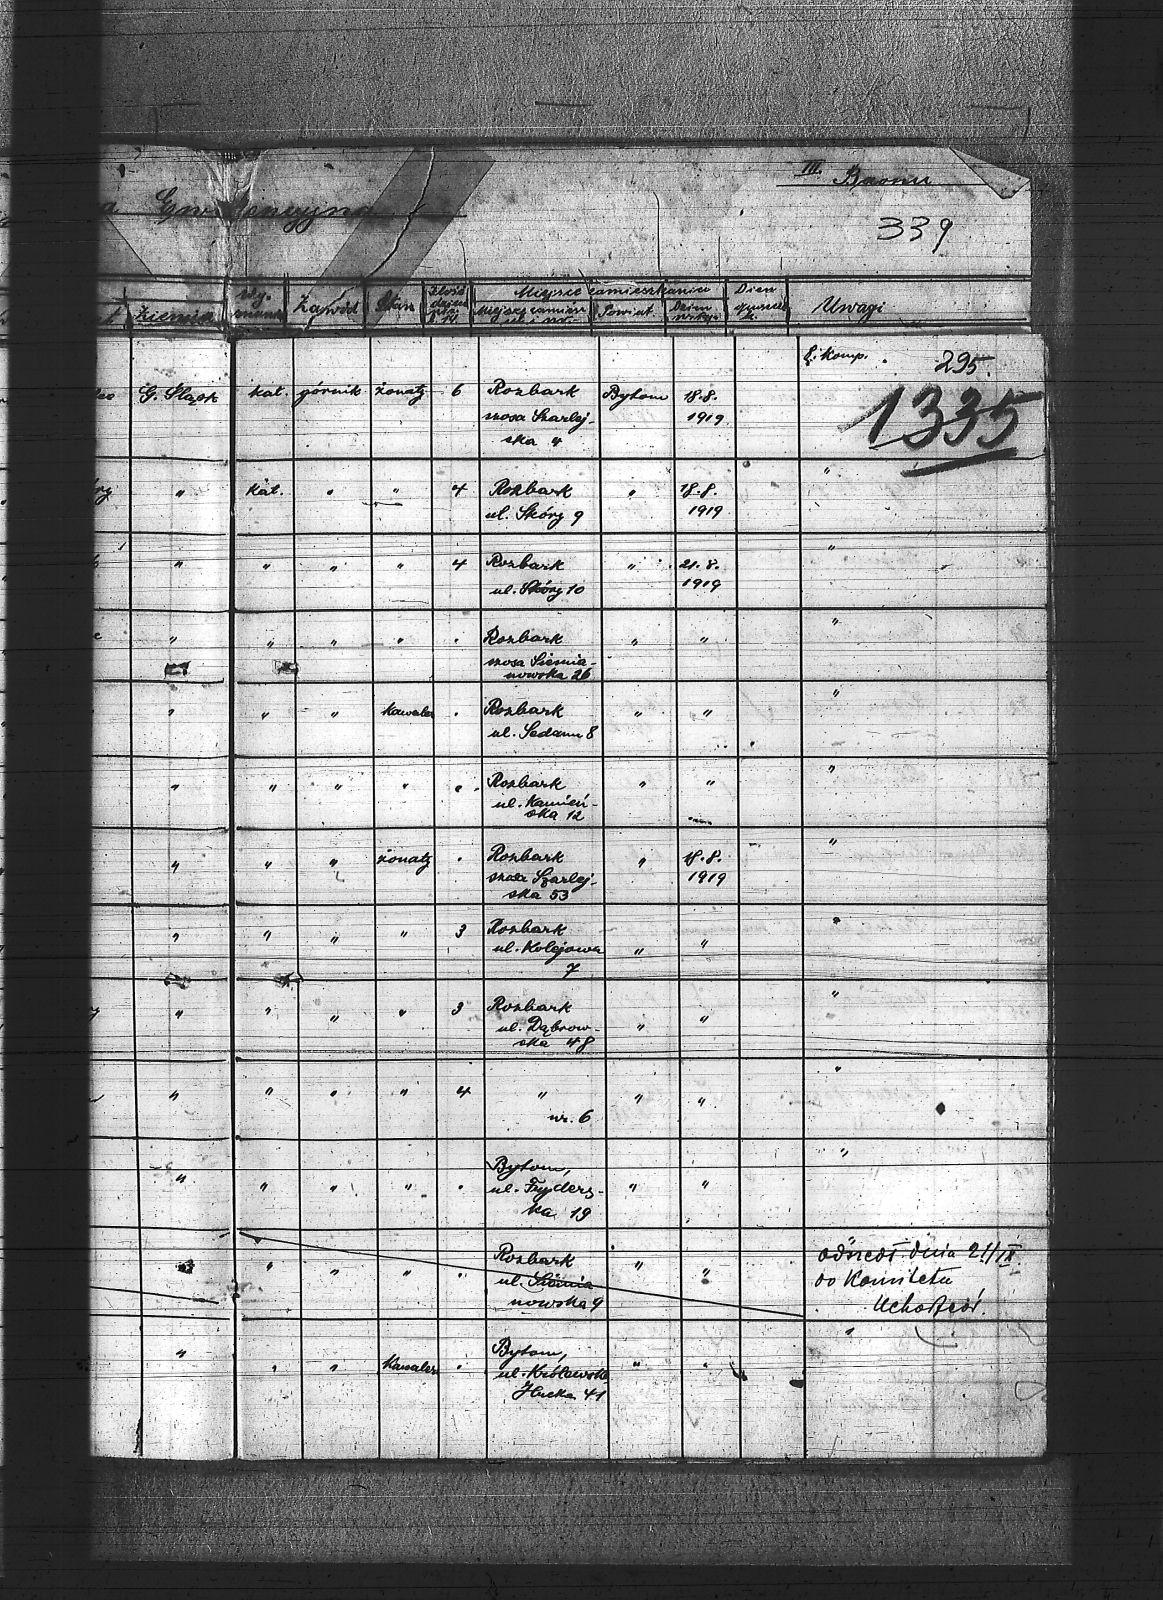 III. Baonu
339
Ziemia Wyznanie Zawód Stan Miejsce zamieszkania Powiat Dzień Uwagi
8. komp. 295.
G. Śląsk kat. górnik żonaty 6 Rozbark Bytom 18.8.
szosa Szarlej- 1919
ska 4
1335
" kat. " " 4 Rozbark " 18.8. "
ul. Skóry 9 1919
" " " " 4 Rozbark " 21.8. "
ul. Skóry 10 1919
" " " " " Rozbark " " "
szosa Siemia-
nowska 26
" " " kawaler " Rozbark " " "
ul. Sedanu 8
" " " " " Rozbark " " "
ul. Kamień-
ska 12
" " " żonaty " Rozbark " 18.8. "
szosa Szarlej- 1919
ska 53
" " " " 3 Rozbark " " "
ul. Kolejowa
7
" " " " 3 Rozbark " " "
ul. Dąbrow-
ska 48
" " " " 4 " " " "
nr. 6
" " " " " Bytom, " " "
ul. Frydery-
ka 19
" " " " Rozbark " " odszedł dnia 21/IX
ul. Siemia do Komitetu
nowska 9 Uchodźców.
" " " Kawaler " Bytom, " " "
ul. Królewska
Hucka 41